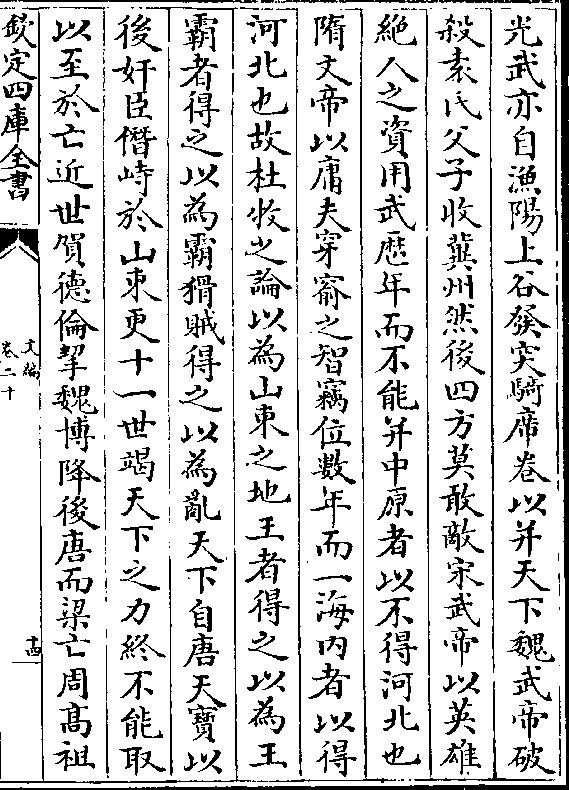 光武亦自漁陽上谷發突騎席卷以并天下魏武帝破
殺袁氏父子收冀州然後四方莫敢敵宋武帝以英雄
絶人之資用武歴年而不能并中原者以不得河北也
隋文帝以庸夫穿窬之智竊位數年而一海内者以得
河北也故杜牧之論以為山東之地王者得之以為王
霸者得之以為霸猾賊得之以為亂天下自唐天寳以
後奸臣僭峙於山東更十一世竭天下之力終不能取
以至於亡近世賀德倫挈魏博降後唐而梁亡周髙祖
欽定四庫全書
文編
卷二十
十四